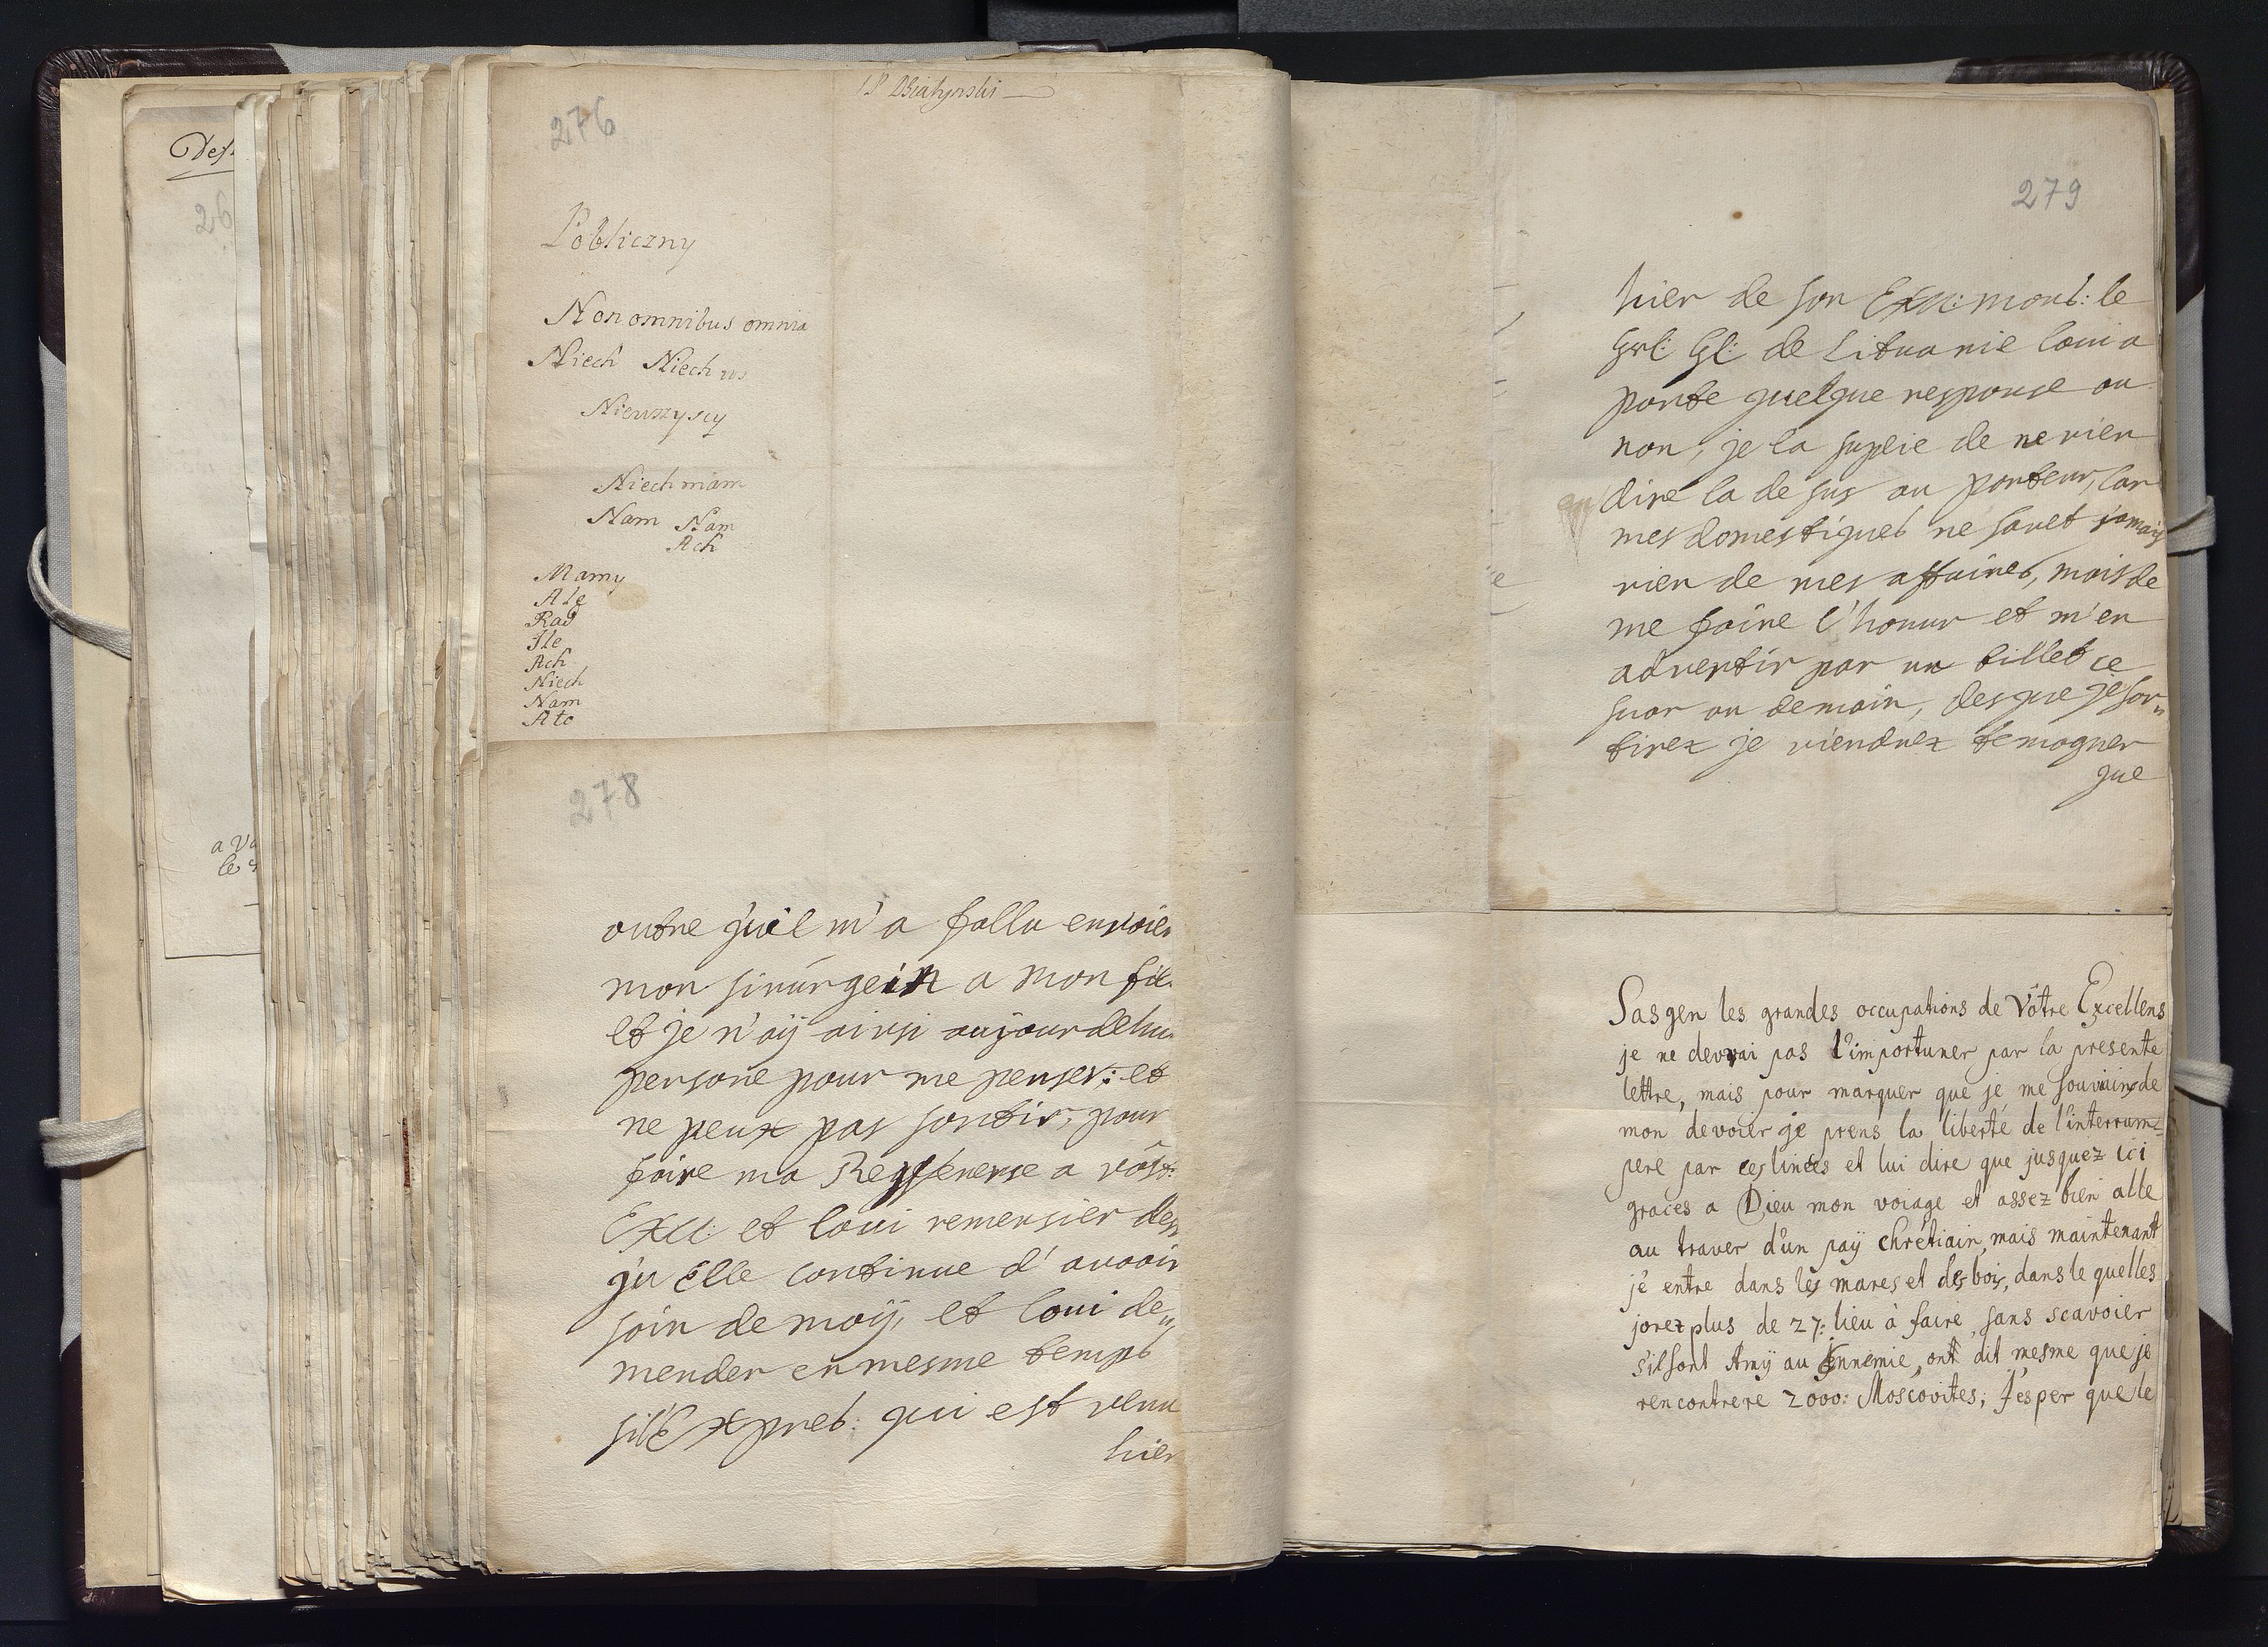 276
Pobliczny
Non omnibus omnia
Niech Niech us
Niewszyscy
Niech mam
Nam Nam
Ach
Mamy
Ale
Rad
Ile
Ach
Niech
Nam
Ato
278
outre qu'il m'a fallu envoier
mon sirurgein a mon
et je n'aÿ ainsi aujourdehui
persone pour me penser: et
ne peux pas sortir, pour
faire ma a vost:
Exll: et loui remersier
qu'Elle continue d'avoir
soin de moÿ, et loui de„
mender en mesme temps
sil Expres: qui est venu
hier
279
hier de son Exll: mons: le
Gl: de Lituanie loui a
porte quelque response ou
non, je la suplie de ne rien
dire la desus au porteur, car
mes domestiques ne savet jamais
rien de mes affaires, mais de
me faire l'honur et m'en
advertir par un billet ce
suar ou demain, des que je sor„
tirez je viendrez temogner
que
les grandes occupations de Vôtre Excellens
je ne devrai pas l'importuner par la presente
lettre, mais pour marquer que je me souvains de
mon devoier je prens la liberté de l'interrum=
pere par ces linées et lui dire que jusquez ici
graces a Dieu mon voiage et assez bien alle
au traver d'un paÿ chrétiain, mais maintenant
je entre dans les mares et des bois, dans le quelles
jorez plus de 27: lieu à faire, sans scavoier
s'il sont Amÿ au Ennemie, ont dit mesme que je
rencontrere 2000: Moscovites; J'esper que le